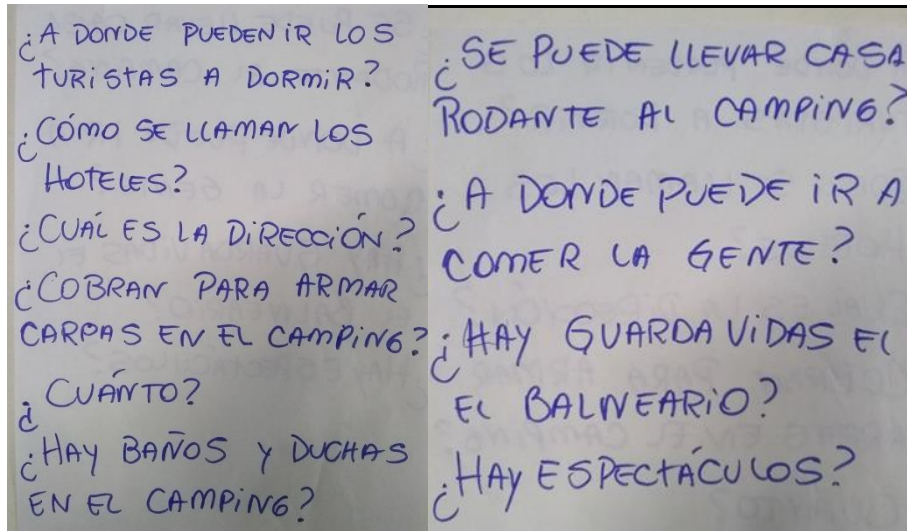 ¿A DONDE PUEDEN iR LOS
TURiStAS A DORMiR?
¿CÓMO SE LLAMAN LOS
HOTELES?
¿CUÁL ES LA DiRECCiÓN?
¿COBRAN PARA ARMAR
CARPAS EN EL CAMPiNG?
¿CUÁNTO?
¿HAY BAÑOS Y DUCHAS
EN EL CAMPiNG?
¿SE PUEDE LLEVAR CASA
RODANTE AL CAMPiNG?
¿A DONDE PUEDE iR A
COMER LA GENTE?
¿HAY GUARDA ViDAS EL
EL BALNEARiO?
¿HAY ESPECTÁCULOS?